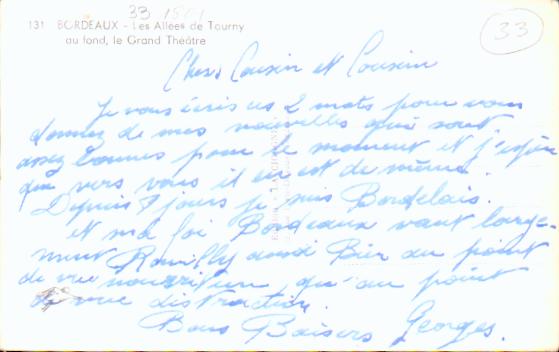 33
131 BORDEAUX - Les Allées de Tourny
au fond, le Grand Théâtre
33
Chers Cousin et Cousine
Je vous écris ces 2 mots pour vous
donner de mes nouvelles qui sont
assez bonnes pour le moment et j'espère
que vers vous il en est de même.
Depuis 8 jours je suis Bordelais.
et ma foi Bordeaux vaut large-
ment aussi Bien au point
de vue nourriture qu'au point
de vue distraction.
Bons Baisers Georges.